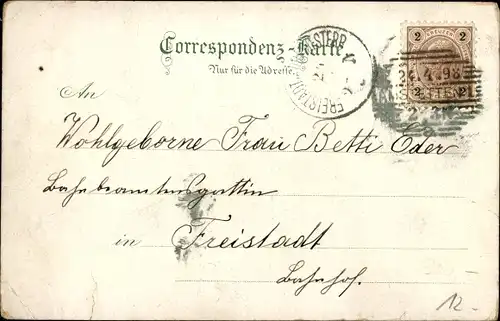 Correspondenz-Karte
Nur für die Adresse.
FREISTADT OBERÖSTERR
2 2
2 2
24.4.98
An
Wohlgeborne Frau Betti Eder
Bahnbeamtensgattin
in Freistadt
Bahnhof.
12.-